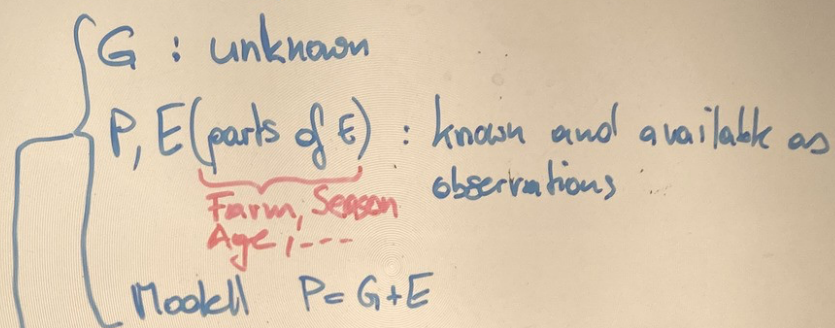 G : unknown
P, E (parts of E) : known and available as
observations
Farm, Season
Age, ---
Modell P = G + E